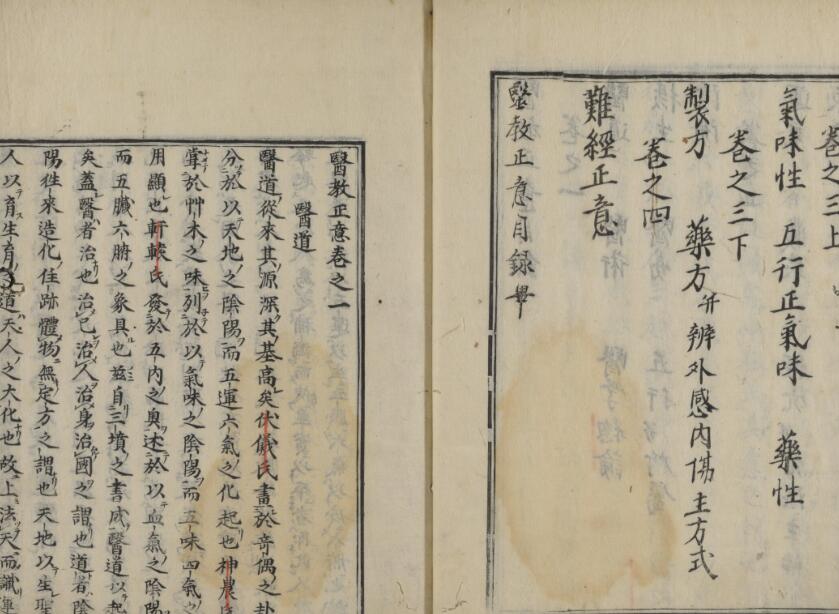 卷之三上
氣味性 五行正氣味 藥性
卷之三下
製方 藥方并辨外感內傷主方式
卷之四
難經正意
醫教正意目録畢
醫教正意卷之一
醫道
醫道從來其源深其基高矣伏儀氏畫於奇偶之卦
分於以天地之陰陽而五運六氣之化起也神農氏
嘗於艸木之味列於以氣味之陰陽而五味四氣之
用顯也軒轅氏發於五内之奥述於以血氣之陰陽
而五臟六腑之象具也茲自三墳之書成醫道以起
矣蓋醫者治也治己治人治身治國之謂也道者陰
陽徃來造化住跡體物無定方之謂也天地以生聖
人以育生育之道天人之大化也故上法天而